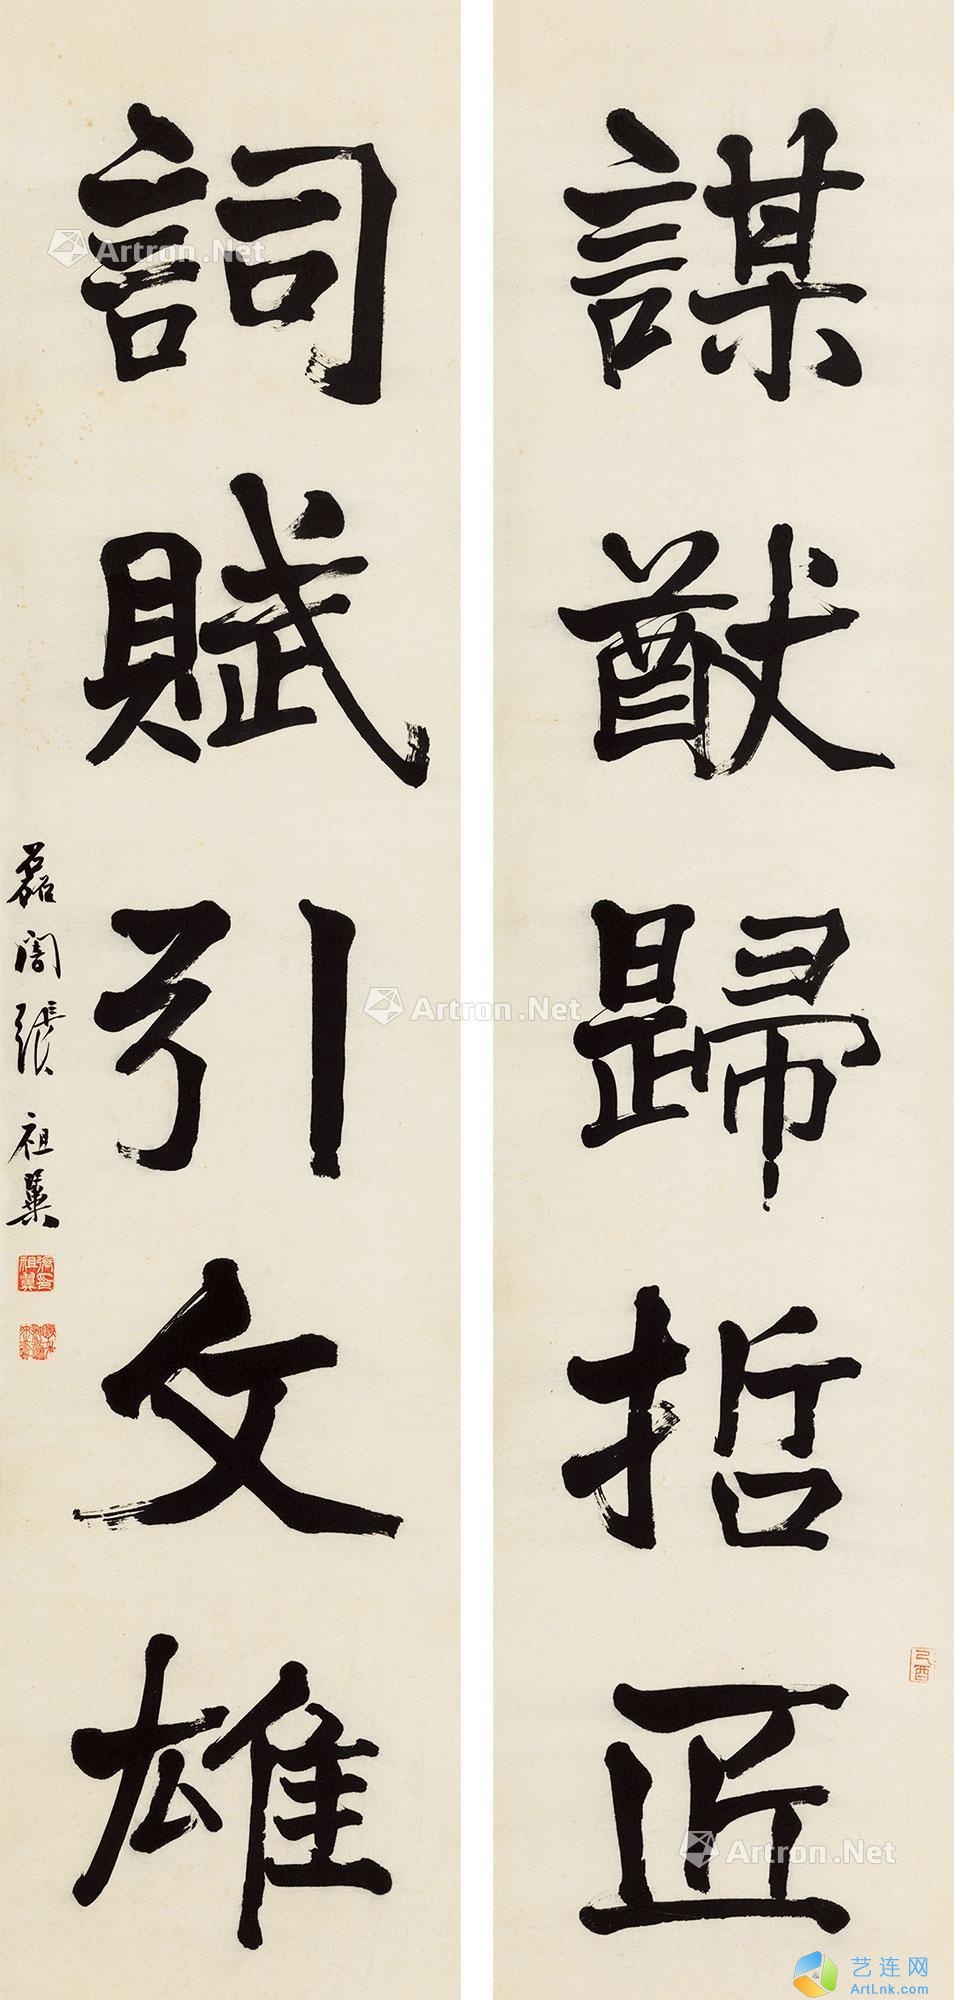 謀猷歸哲匠
詞賦引文雄
磊闇張祖翼
張祖翼印
己酉
Artron.Net
Artron.Net
Artron.Net
艺连网
ArtLnk.com